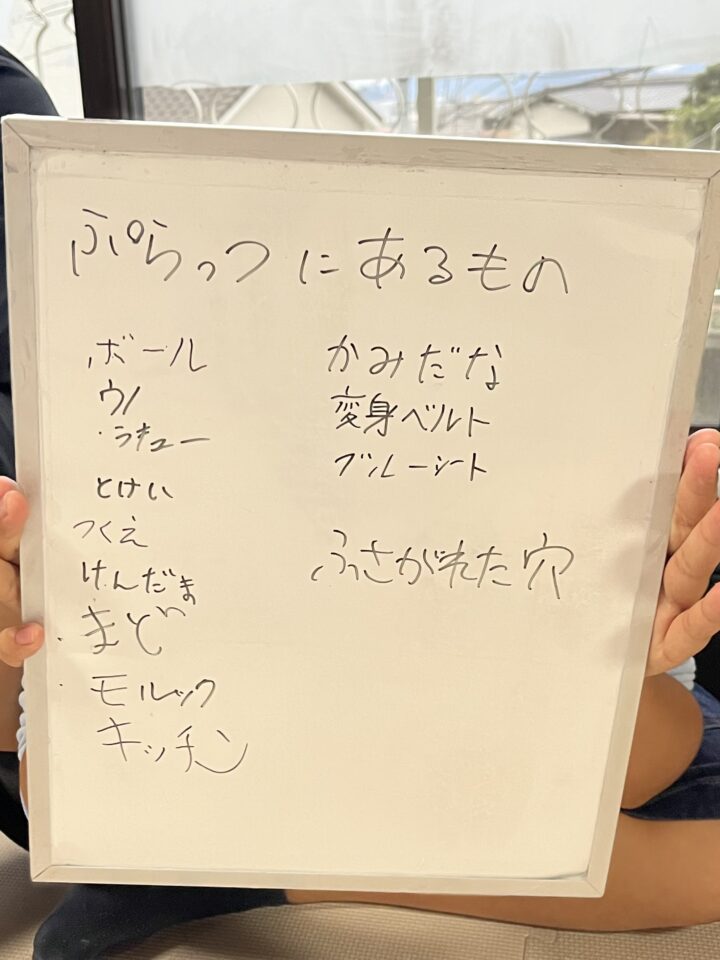 ぷらっつにあるもの
ボール
ウノ
・ラキュー
とけい
つくえ
けんだま
・まど
・モルック
キッチン
かみだな
変身ベルト
ブルーシート
ふさがれた穴